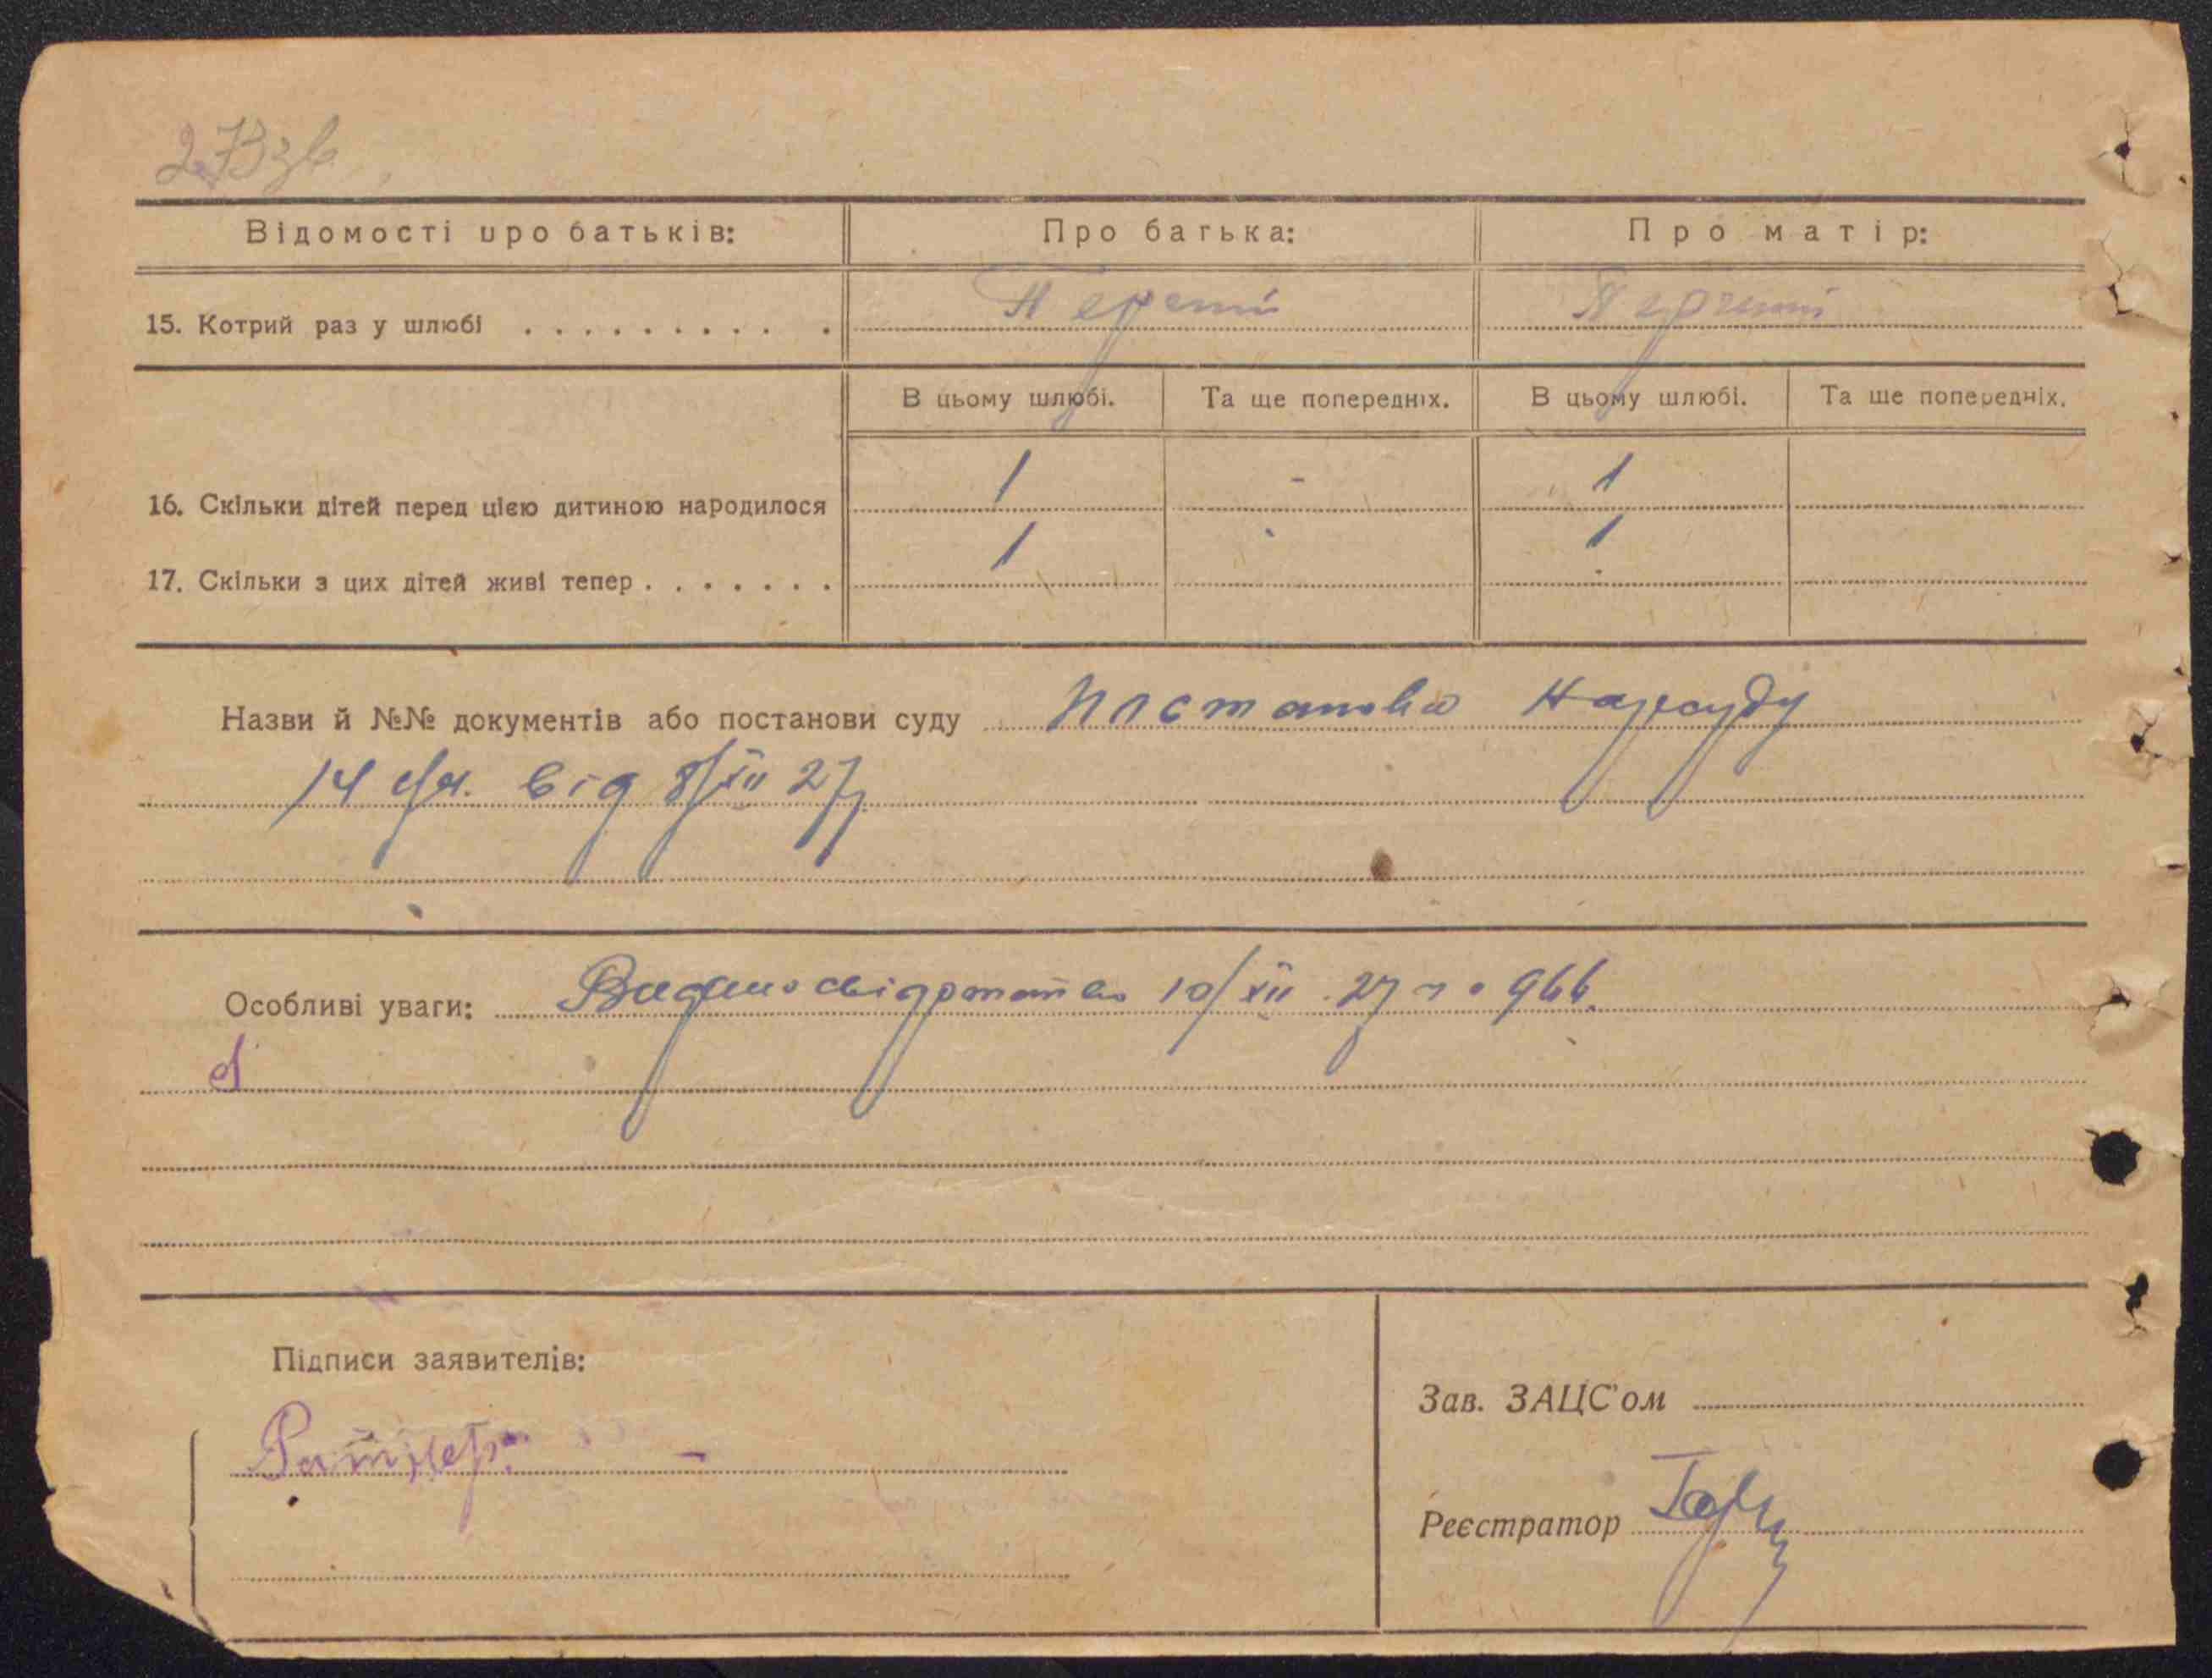 273 зв
Відомості про батьків: Про батька: Про матір:
15. Котрий раз у шлюбі . . . . . . . . . . Перший Перший
В цьому шлюбі. Та ще попередніх. В цьому шлюбі. Та ще попередніх.
16. Скільки дітей перед цією дитиною народилося 1 - 1
17. Скільки з цих дітей живі тепер . . . . . . . 1 1
Назви й №№ документів або постанови суду Постанова Нарсуду
14 від 8/XII 27
Особливі уваги: Видано свідотство 10/XII 27 966.
Підписи заявителів:
Зав. ЗАЦС'ом
Ратнер
Реєстратор